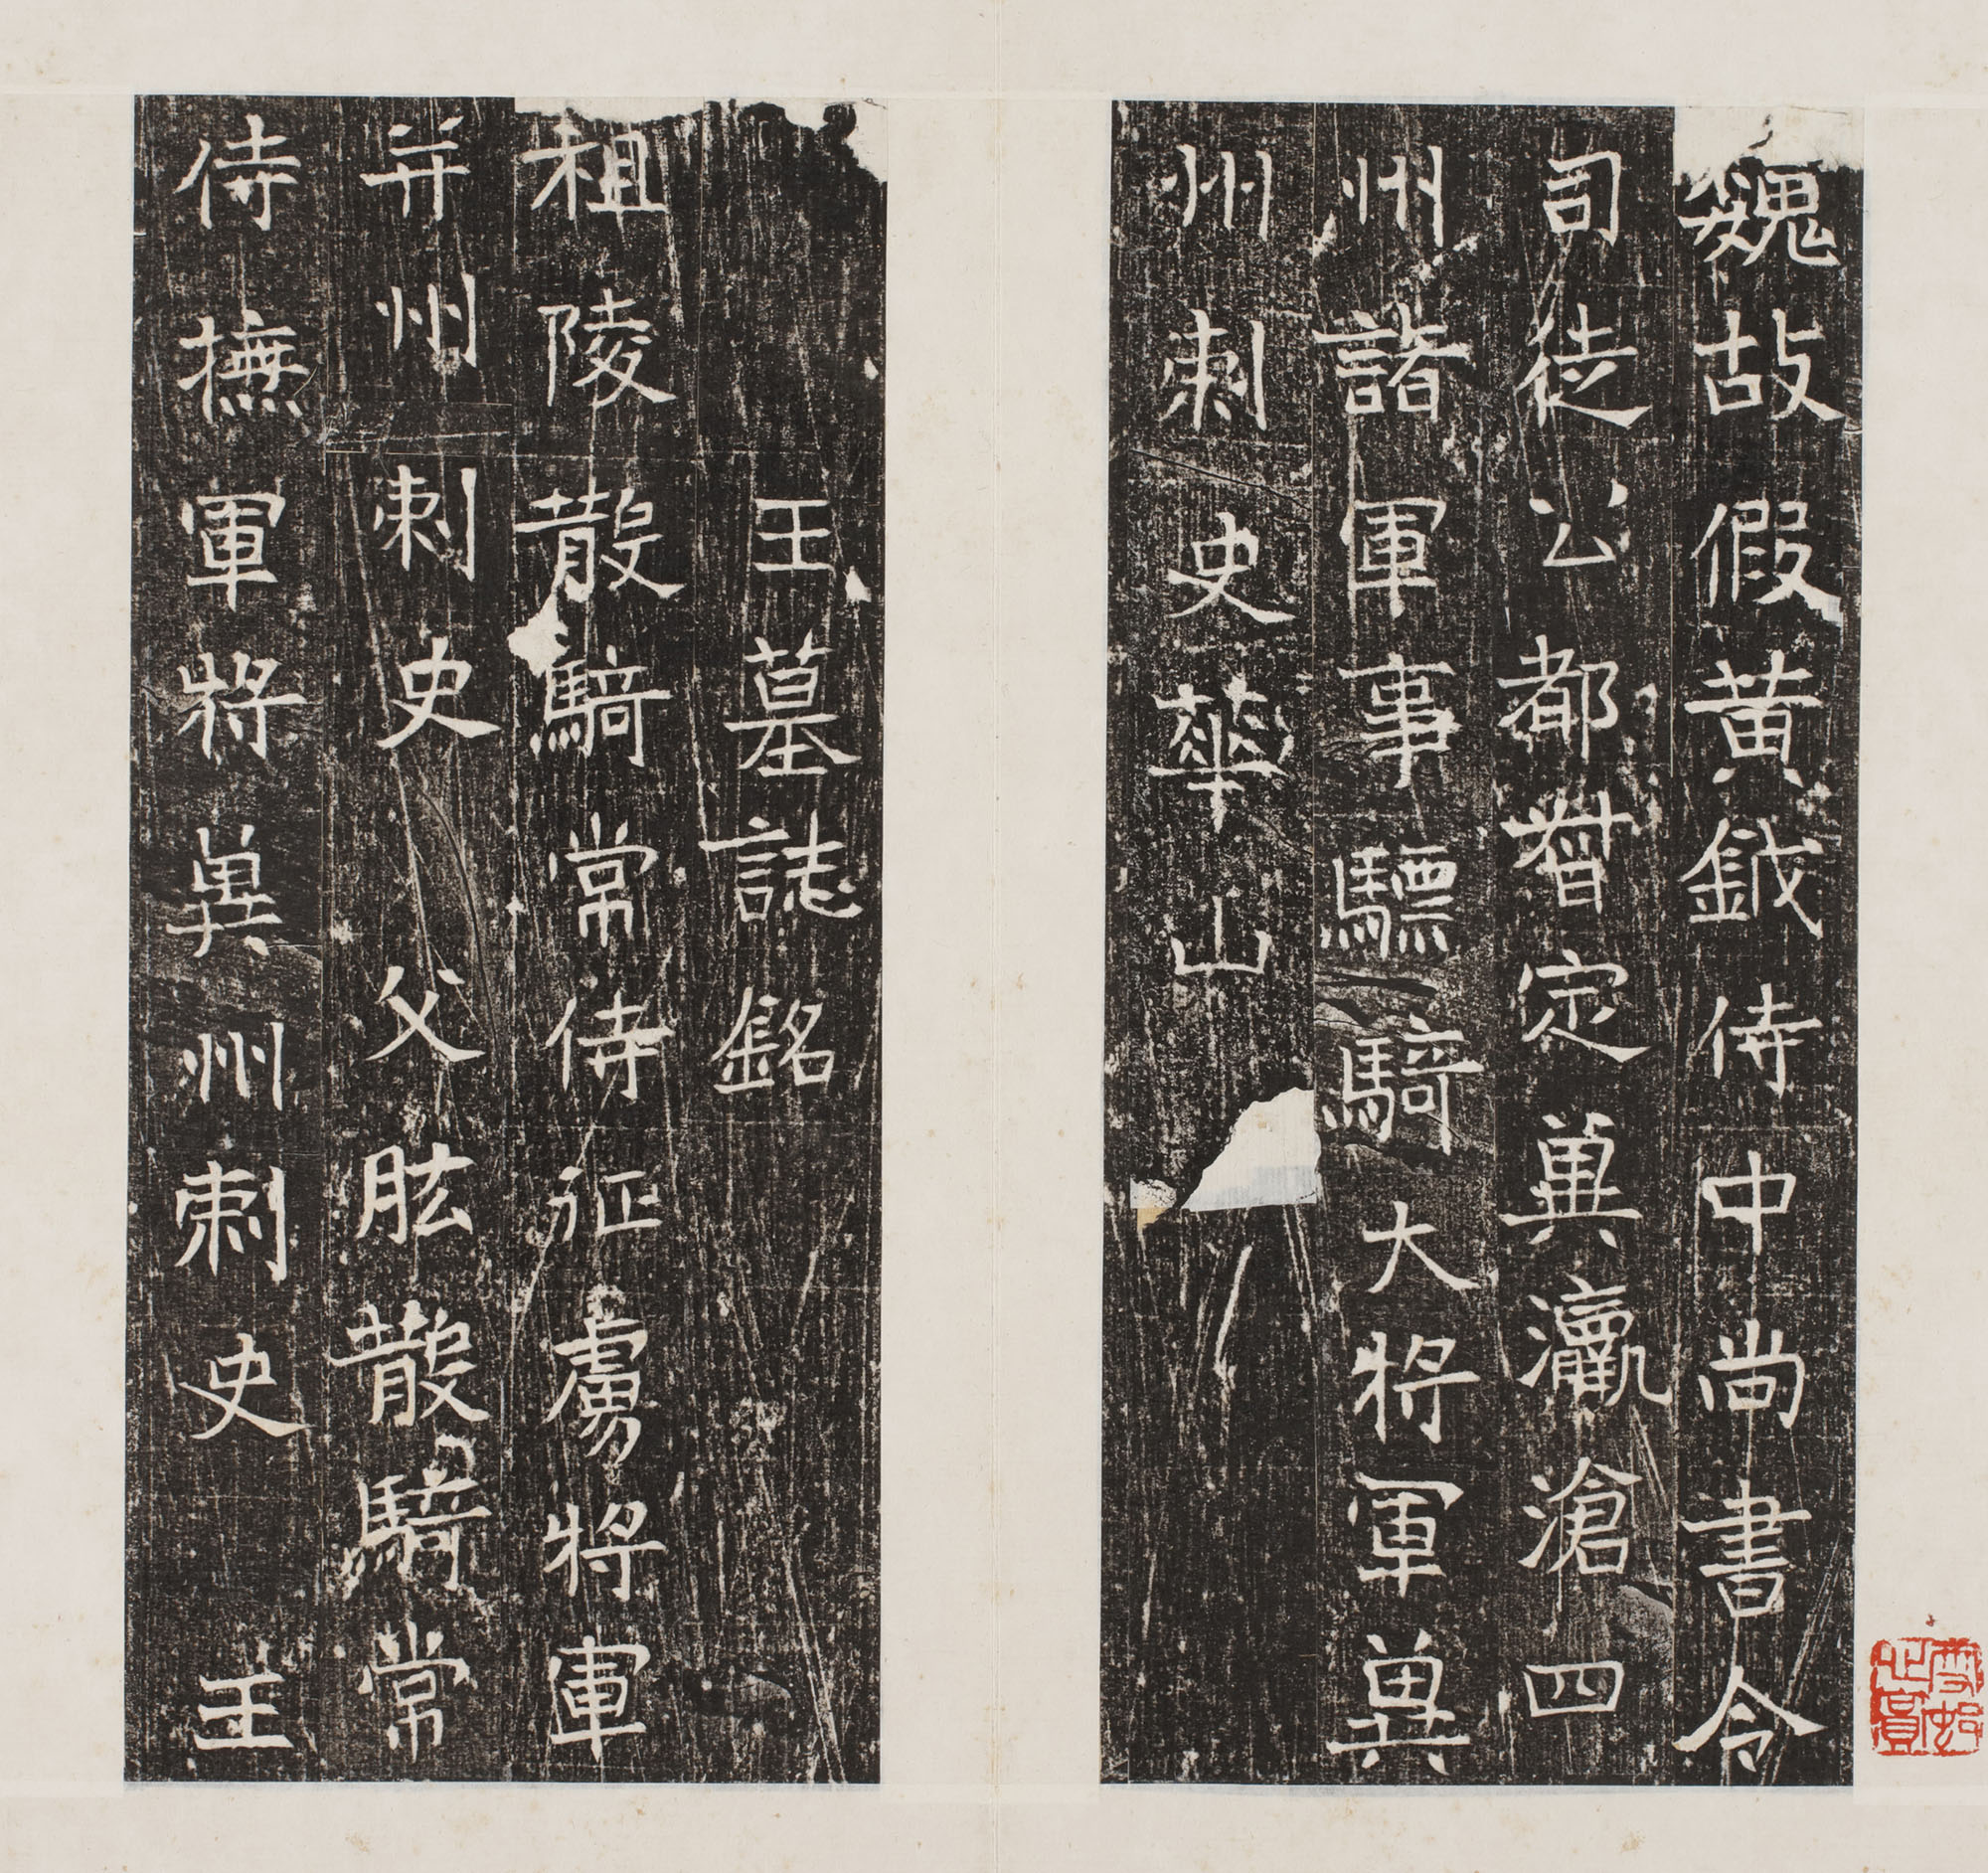 魏故假黃鉞侍中尚書令
司徒公都督定兾瀛滄四
州諸軍事驃騎大將軍兾
州刺史華山
王墓誌銘
祖陵散騎常侍征虜將軍
并州刺史 父肱散騎常
侍撫軍將兾州刺史 王